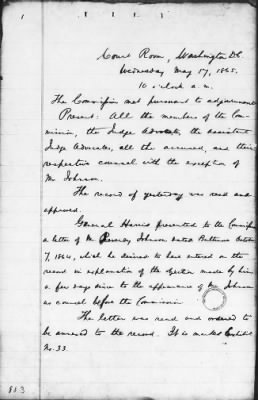 Court Room, Washington D.C.
Wednesday May 17, 1865.
10 o'clock a.m.
The Commission met pursuant to adjournment
Present: All the members of the Com-
mission, the Judge Advocate, the assistant
Judge Advocates, all the accused, and their
respective counsel with the exception of
Mr Johnson.
The record of yesterday was read and
approved.
General Harris presented to the Commission
a letter of Mr Reverdy Johnson dated Baltimore October
7, 1864, which he desired to have entered on the
record in explanation of the objection made by him
a few days since to the appearance of Mr Johnson
as counsel before the Commission
The letter was read and ordered to
be annexed to the record. It is marked Exhibit
No. 33.